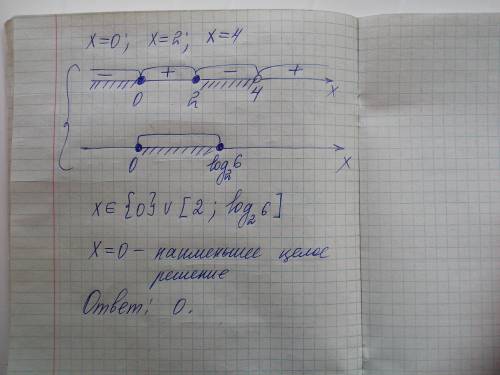 x=0; x=2; x=4
− + − +
0 2 4 x
0 log₂6 x
x∈{0}∪[2; log₂6]
x=0 – наименьшее целое
решение
Ответ: 0.